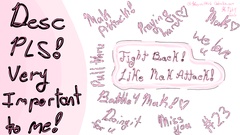 Desc
PLS!
Very
Important
to me!
Mak
Attack!
Praying
hard
SIS
we love
u
Pull thru
Fight Back!
Like Mak Attack!
Battle 4 Mak!
Doing it
for u
Miss
you
#23